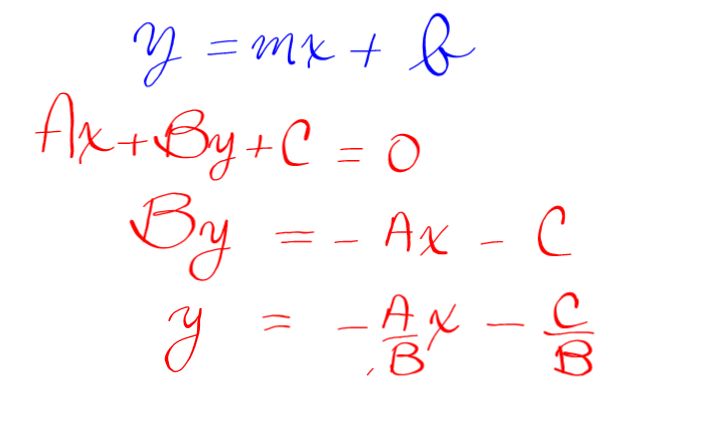 y = mx + b
Ax + By + C = 0
By = - Ax - C
y = - A/B x - C/B